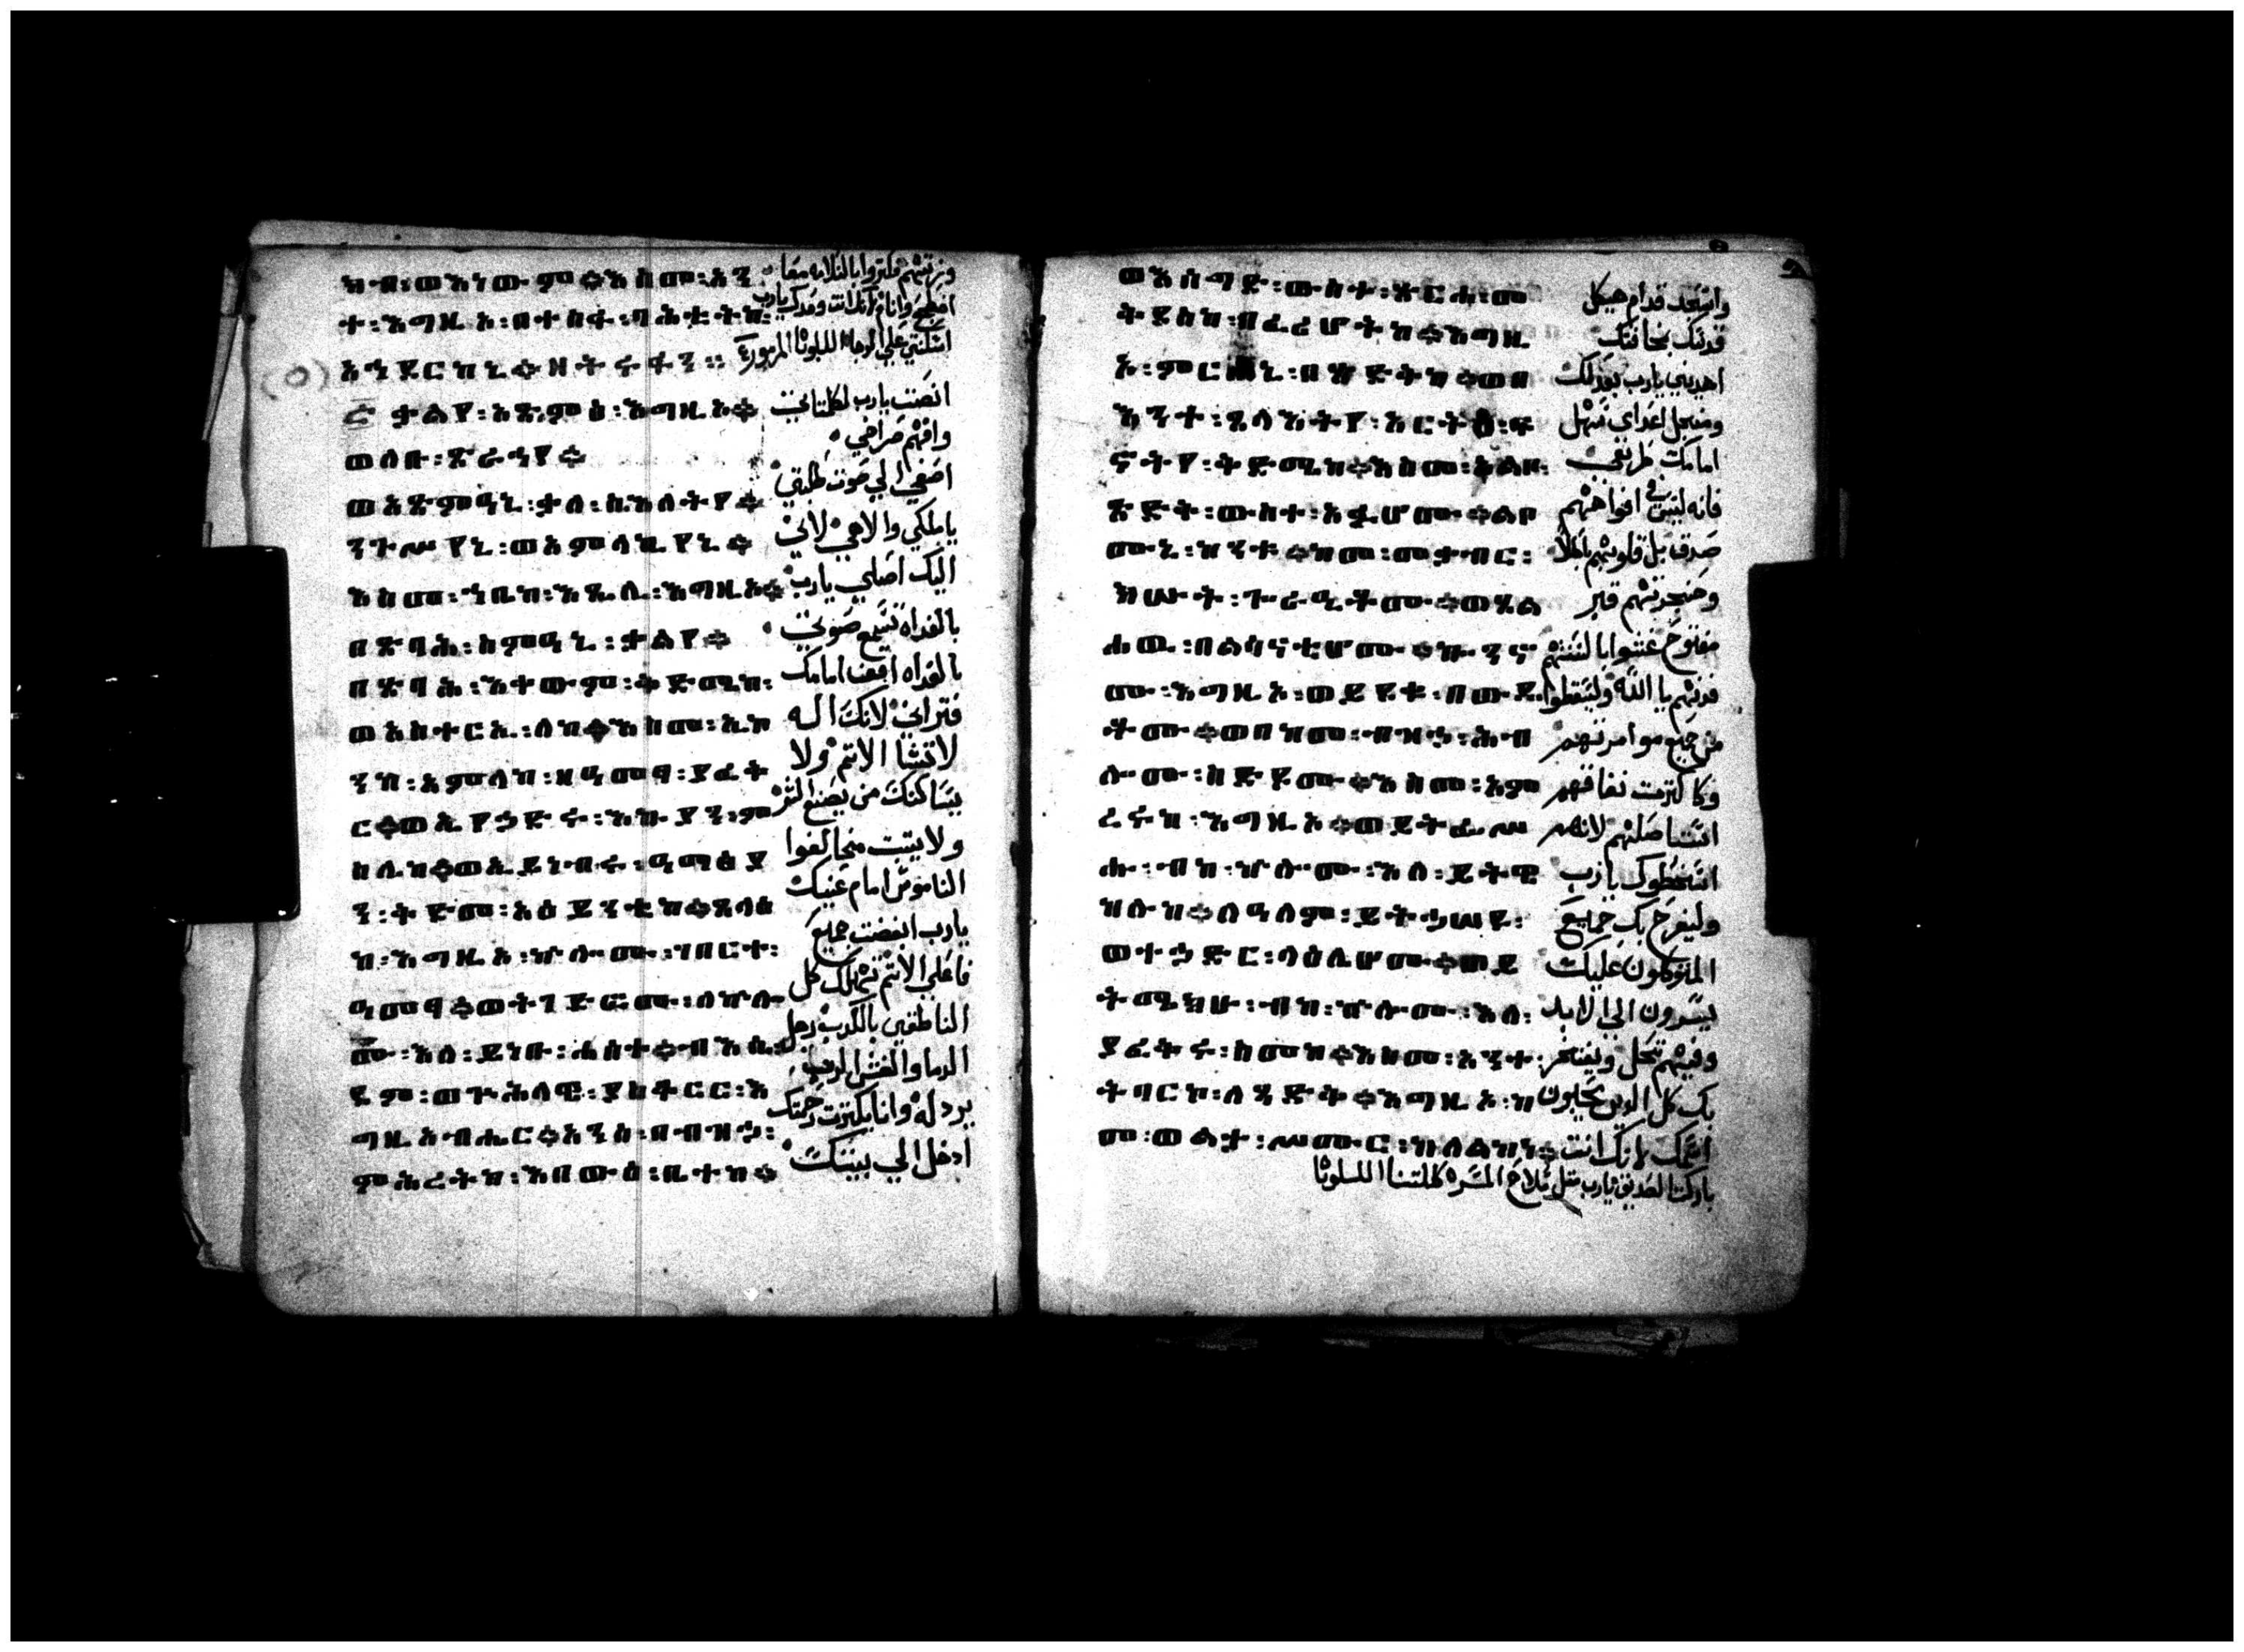 ክብ፡ወእነውም።እስመ፡አን
ተ፡እግዚኦ፡በተስፋ፡ባሕቲትከ፡
አኅደርከኒ። ዘትራፋን ።
(٥)
፭ ቃልየ፡አጽምዕ፡እግዚኦ።
ወለቡ፡ጽራኅየ።
ወአጽምዐኒ፡ቃለ፡ስእለትየ።
ንጉሥየኒ፡ወአምላኪየኒ።
እስመ፡ኀቤከ፡እጼሊ፡እግዚኦ።
በጽባሕ፡ስምዐኒ፡ቃልየ።
በጽባሕ፡እቀውም፡ቅድሜከ፡
ወአስተርኢ፡ለከ።እስመ፡ኢኮ
ንከ፡አምላከ፡ዘዐመፃ፡ያፈቅ
ር።ወኢየኃድሩ፡እኩያን፡ምስ
ሌከ።ወኢይነብሩ፡ዐማፅያ
ን፡ቅድመ፡አዕይንቲከ።ጸላእ
ከ፡እግዚኦ፡ኵሎሙ፡ገበርተ፡
ዐመፃ።ወትገድፎሙ፡ለኵሎ
ሙ፡እለ፡ይነቡ፡ሐሰተ።ብእሴ፡
ደም፡ወጕሕላዌ፡ያስቆርር፡እ
ግዚአብሔር።አንሰ፡በብዝኃ፡
ምሕረትከ፡እበውእ፡ቤተከ።
انصت يارب لكلماتي
وافهم صراخي
اصغي الي صوت طلبتي
يا ملكي والاهي لاني
اليك اصلي يارب
بالغداه تسمع صوتي
بالغداه اقف امامك
فتراني لانك اله
لا تشا الاتم ولا
يساكنك من يصنع الشر
ولا يتبت مخالفوا
الناموس امام عنيك
يارب ابغضت جميع
فاعلي الاتم تهلك كل
الناطقين بالكدب رجل
الدما والغش الرب
يردله وانا بكترت رحمتك
ادخل الي بيتك
ወእሰግድ፡ውስተ፡ጽርሐ፡መ
ቅደስከ፡በፈሪሆትከ።እግዚ
ኦ፡ምርሐኒ፡በጽድቅከ።ወበ
እንተ፡ጸላእትየ፡አርትዕ፡ፍ
ኖትየ፡ቅድሜከ።እስመ፡አልቦ፡
ጽድቅ፡ውስተ፡አፉሆሙ።ልቦ
ሙኒ፡ከንቱ።ከመ፡መቃብር፡
ክሡት፡ጐራዒቶሙ።ወጸል
ሐዉ፡በልሳናቲሆሙ።ኰንኖ
ሙ፡እግዚኦ፡ወይደቁ፡በውዴ
ቶሙ።ወበከመ፡ብዝኃ፡ሕብ
ሎሙ፡ስድዶሙ።እስመ፡አም
ረሩከ፡እግዚኦ።ወይትፌሥ
ሑ፡ብከ፡ኵሎሙ፡እለ፡ይትዌ
ከሉከ።ለዓለም፡ይትኃሠዩ፡
ወተኃድር፡ላዕሌሆሙ።ወይ
ትሜክሁ፡ብከ፡ኵሎሙ፡እለ፡
ያፈቅሩ፡ስመከ።እስመ፡አንተ፡
ትባርኮ፡ለጻድቅ።እግዚኦ፡ከ
መ፡ወልታ፡ሥሙር፡ከለልከነ።
واسجد قدام هيكل
قدسك بمخافتك
اهديني يارب بعدلك
ومن اجل اعداي سهل
امامك طريقي
فانه ليس في افواههم
صدق بل قلوبهم باطلا
وحنجرتهم قبر
مفتوح غشوا بالسنتهم
فدنهم يا الله وليسقطوا
من جميع موامرتهم
وكا كترت نفاقهم
استاصلهم لانهم
اسخطوك يارب
وليفرح بك جميع
المتوكلون عليك
يسرون الي الابد
وفيهم تحل ويفتخر
بك كل الدين يحبون
اسمك لانك انت
باركت الصديق يارب متل سلاح المسره كللتنا